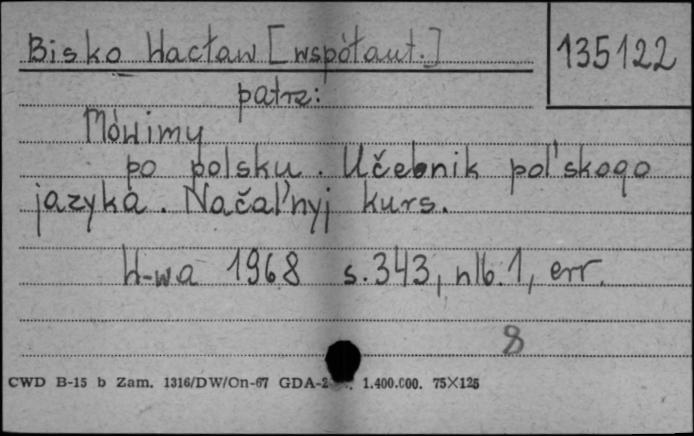 Bisko Wacław [współaut.]
135122
patrz:
Mówimy
po polsku. Učebnik pol'skogo
jazyka. Načal'nyj kurs.
W-wa 1968 s. 343, nlb. 1, err.
8
CWD B-15 b Zam. 1316/DW/On-67 GDA-2 1.400.000. 75×125